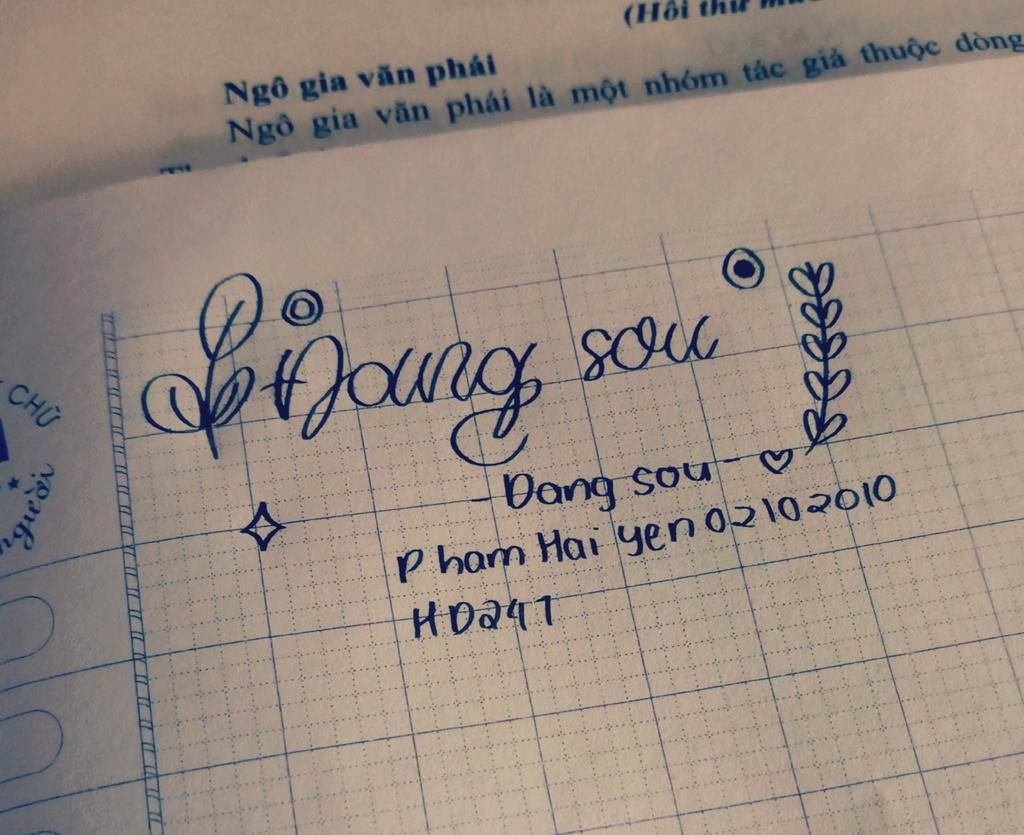 (Hồi thứ
Ngô gia văn phái
Ngô gia văn phái là một nhóm tác giả thuộc dòng
CHỮ
người
Dang sou
- Dang sou -
Pham Hai yen 02102010
HD241